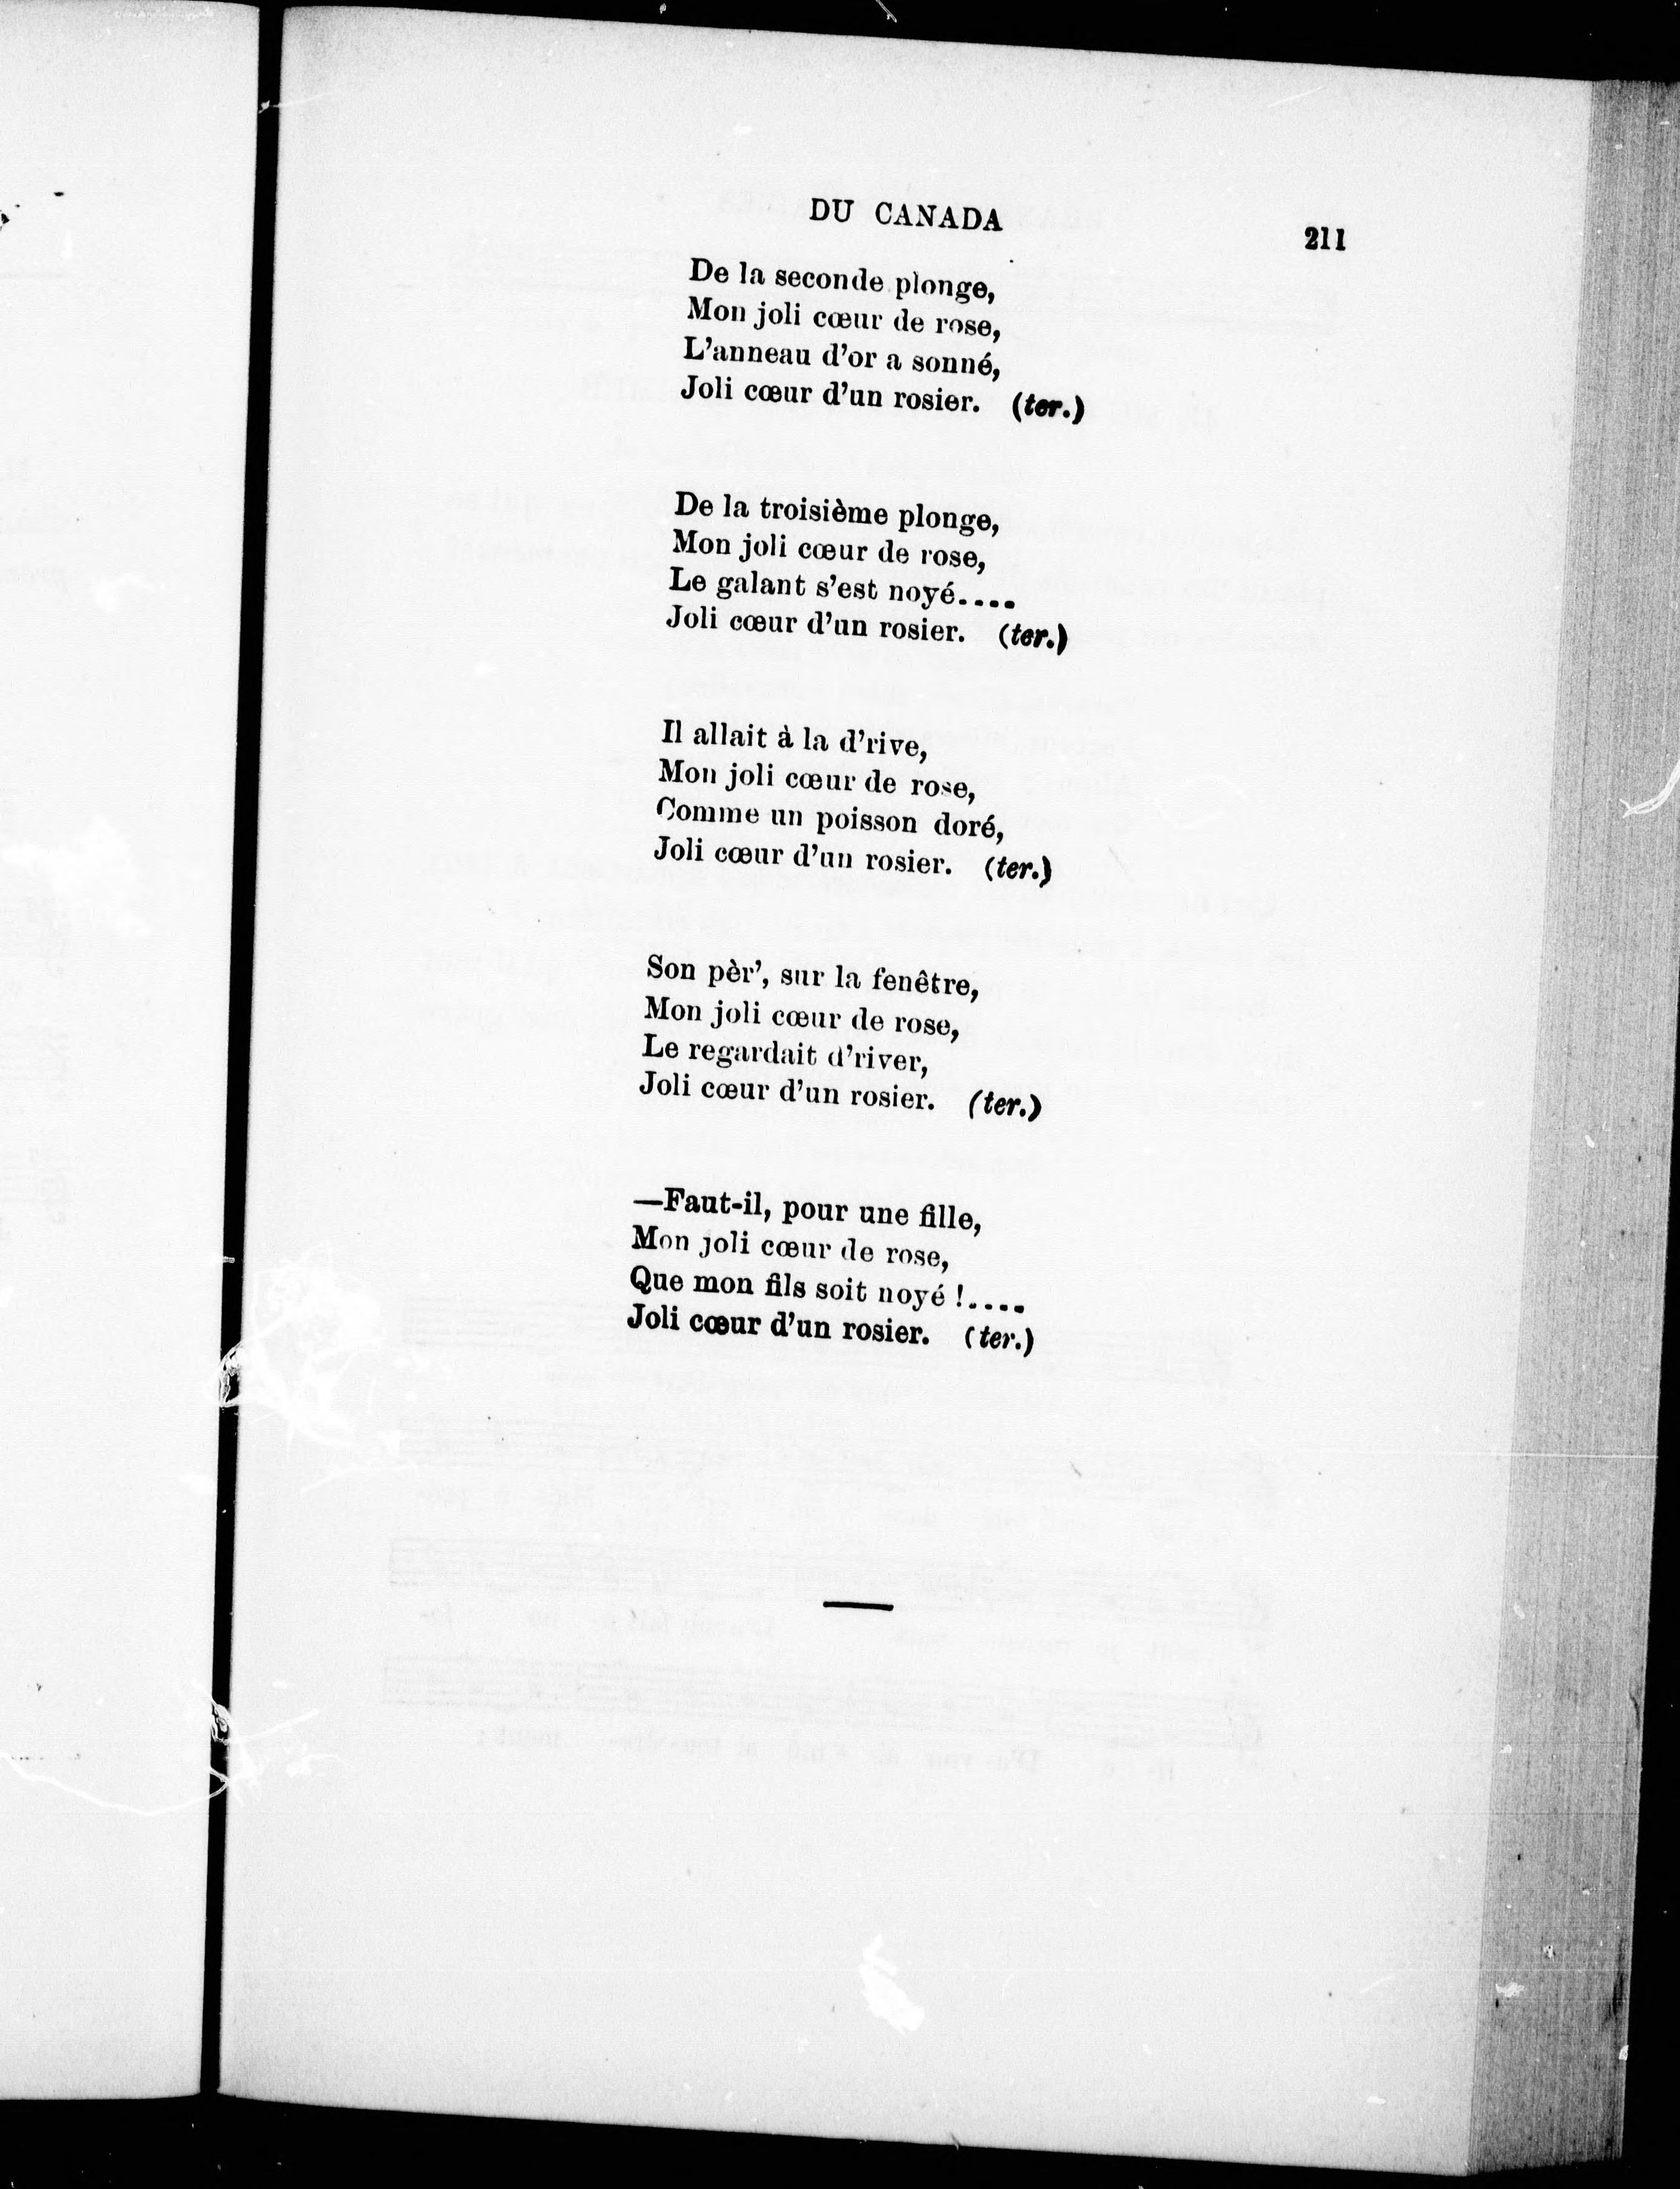 DU CANADA
211
De la seconde plonge,
Mon joli cœur de rose,
L'anneau d'or a sonné,
Joli cœur d'un rosier. (ter.)
De la troisième plonge,
Mon joli cœur de rose,
Le galant s'est noyé....
Joli cœur d'un rosier. (ter.)
Il allait à la d'rive,
Mon joli cœur de rose,
Comme un poisson doré,
Joli cœur d'un rosier. (ter.)
Son pèr', sur la fenêtre,
Mon joli cœur de rose,
Le regardait d'river,
Joli cœur d'un rosier. (ter.)
—Faut-il, pour une fille,
Mon joli cœur de rose,
Que mon fils soit noyé !....
Joli cœur d'un rosier. (ter.)